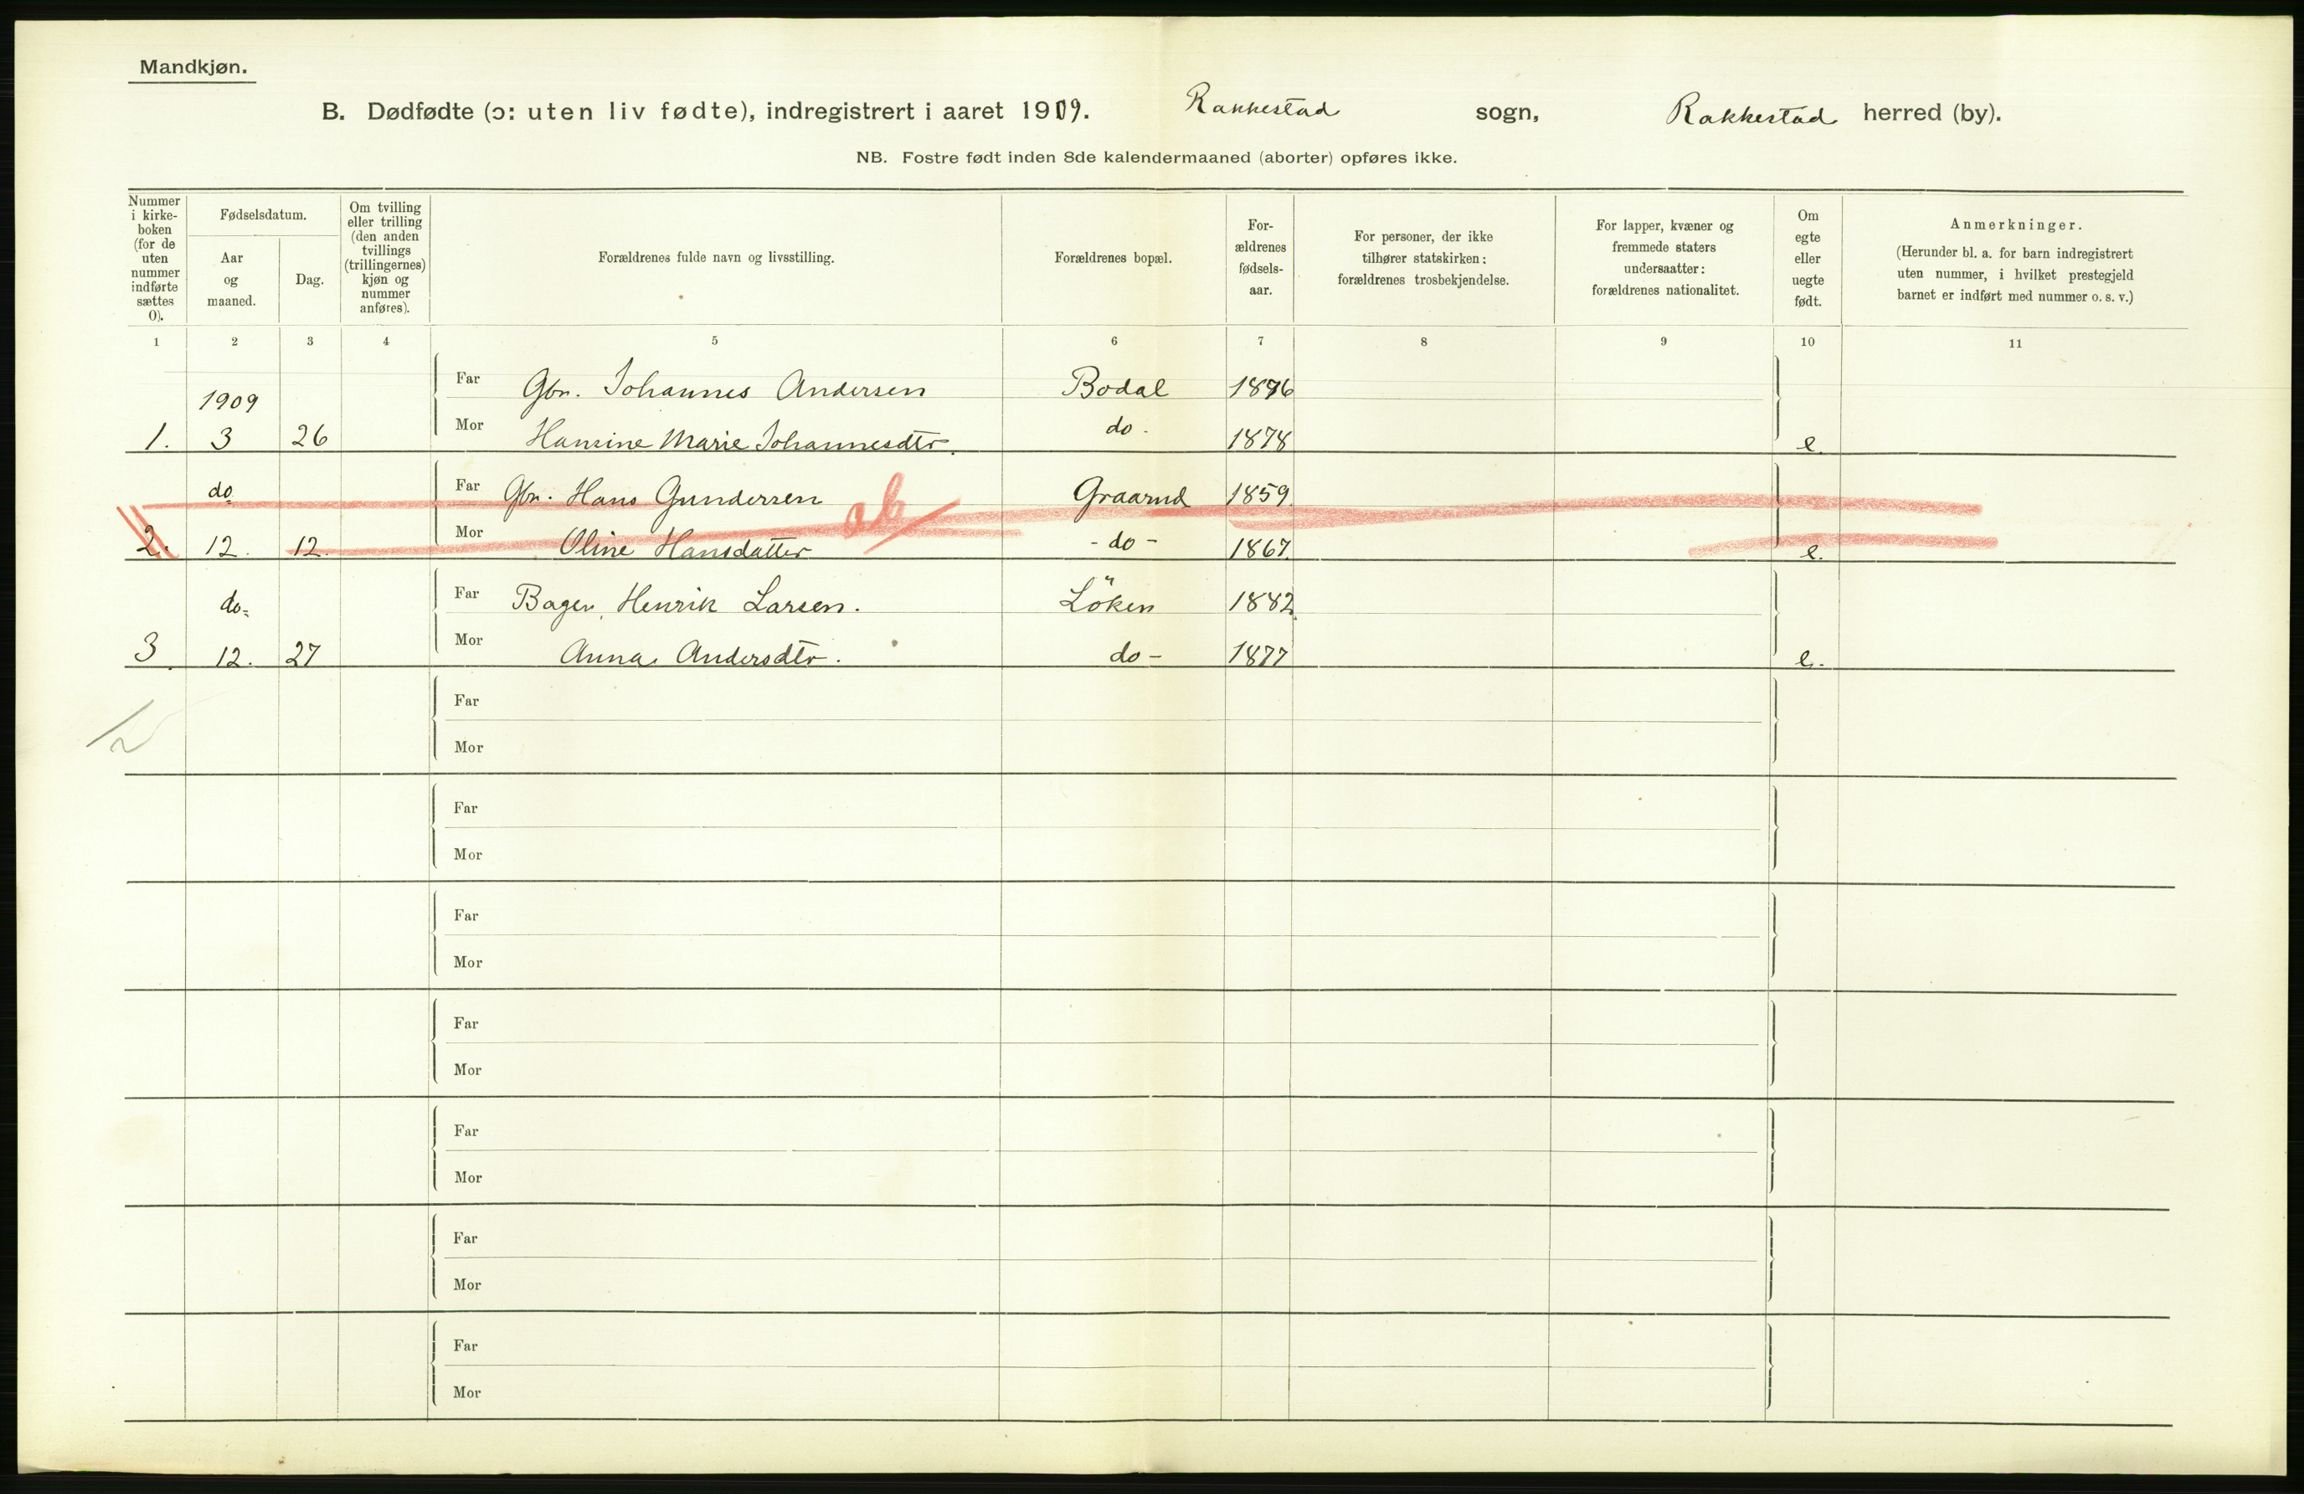 Mandkjøn.
B. Dødfødte (ɔ: uten liv fødte), indregistrert i aaret 1909. Rakkestad sogn, Rakkestad herred (by).
NB. Fostre født inden 8de kalendermaaned (aborter) opføres ikke.
Nummer i kirke- boken (for de uten nummer indførte sættes 0).
Fødselsdatum.
Aar og maaned.
Dag.
Om tvilling eller trilling (den anden tvillings (trillingernes) kjøn og nummer anføres).
Forældrenes fulde navn og livsstilling.
Forældrenes bopæl.
For- ældrenes fødsels- aar.
For personer, der ikke tilhører statskirken: forældrenes trosbekjendelse.
For lapper, kvæner og fremmede staters undersaatter: forældrenes nationalitet.
Om egte eller uegte født.
Anmerkninger.
(Herunder bl. a. for barn indregistrert uten nummer, i hvilket prestegjeld barnet er indført med nummer o. s. v.)
1 2 3 4 5 6 7 8 9 10 11
1909 Far Gbr. Johannes Andersen Bodal 1876
1. 3 26 Mor Hansine Marie Johannesdtr. do. 1878 e.
do Far Gbr. Hans Gundersen Graarud 1859.
2. 12. 12. Mor Oline Hansdatter - do - 1867. e.
ab
do- Far Bager Henrik Larsen. Löken 1882
3. 12. 27 Mor Anna Andersdtr. do - 1877 e.
Far
Mor
Far
Mor
Far
Mor
Far
Mor
Far
Mor
Far
Mor
Far
Mor